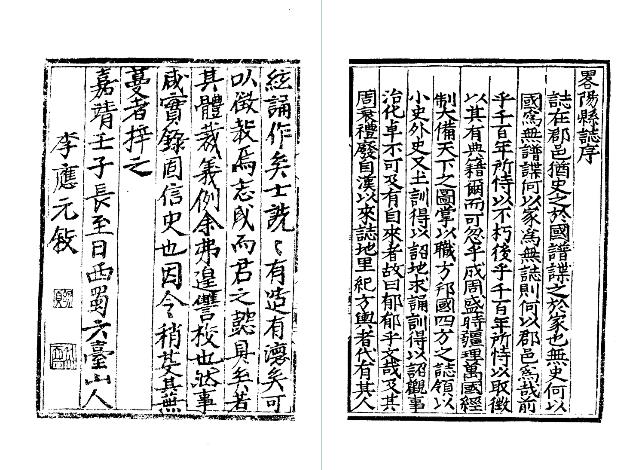 畧陽縣誌序
誌在郡邑猶史之於國譜諜之於家也無史何以
國寫無譜諜何以家寫無誌則何以郡邑寫哉前
乎千百年所恃以不朽後乎千百年所恃以取徵
以其有典籍爾而可忽乎成周盛時疆理萬國經
制大備天下之圖掌以職方邦國四方之誌領以
小史外史又土訓得以詔地求誦訓得以詔觀事
治化卓不可及有自來者故曰郁郁乎文哉及其
周衰禮廢自漢以來誌地里紀方輿者代有其人
絃誦作矣士訦〻有造有瀤矣可
以徵教焉志成而君之懿具矣若
其體裁義例余弗遑讐校也然事
咸實錄固信史也因令稍芟其蕪
蔓者梓之
嘉靖壬子長至日西蜀六臺山人
李應元敘